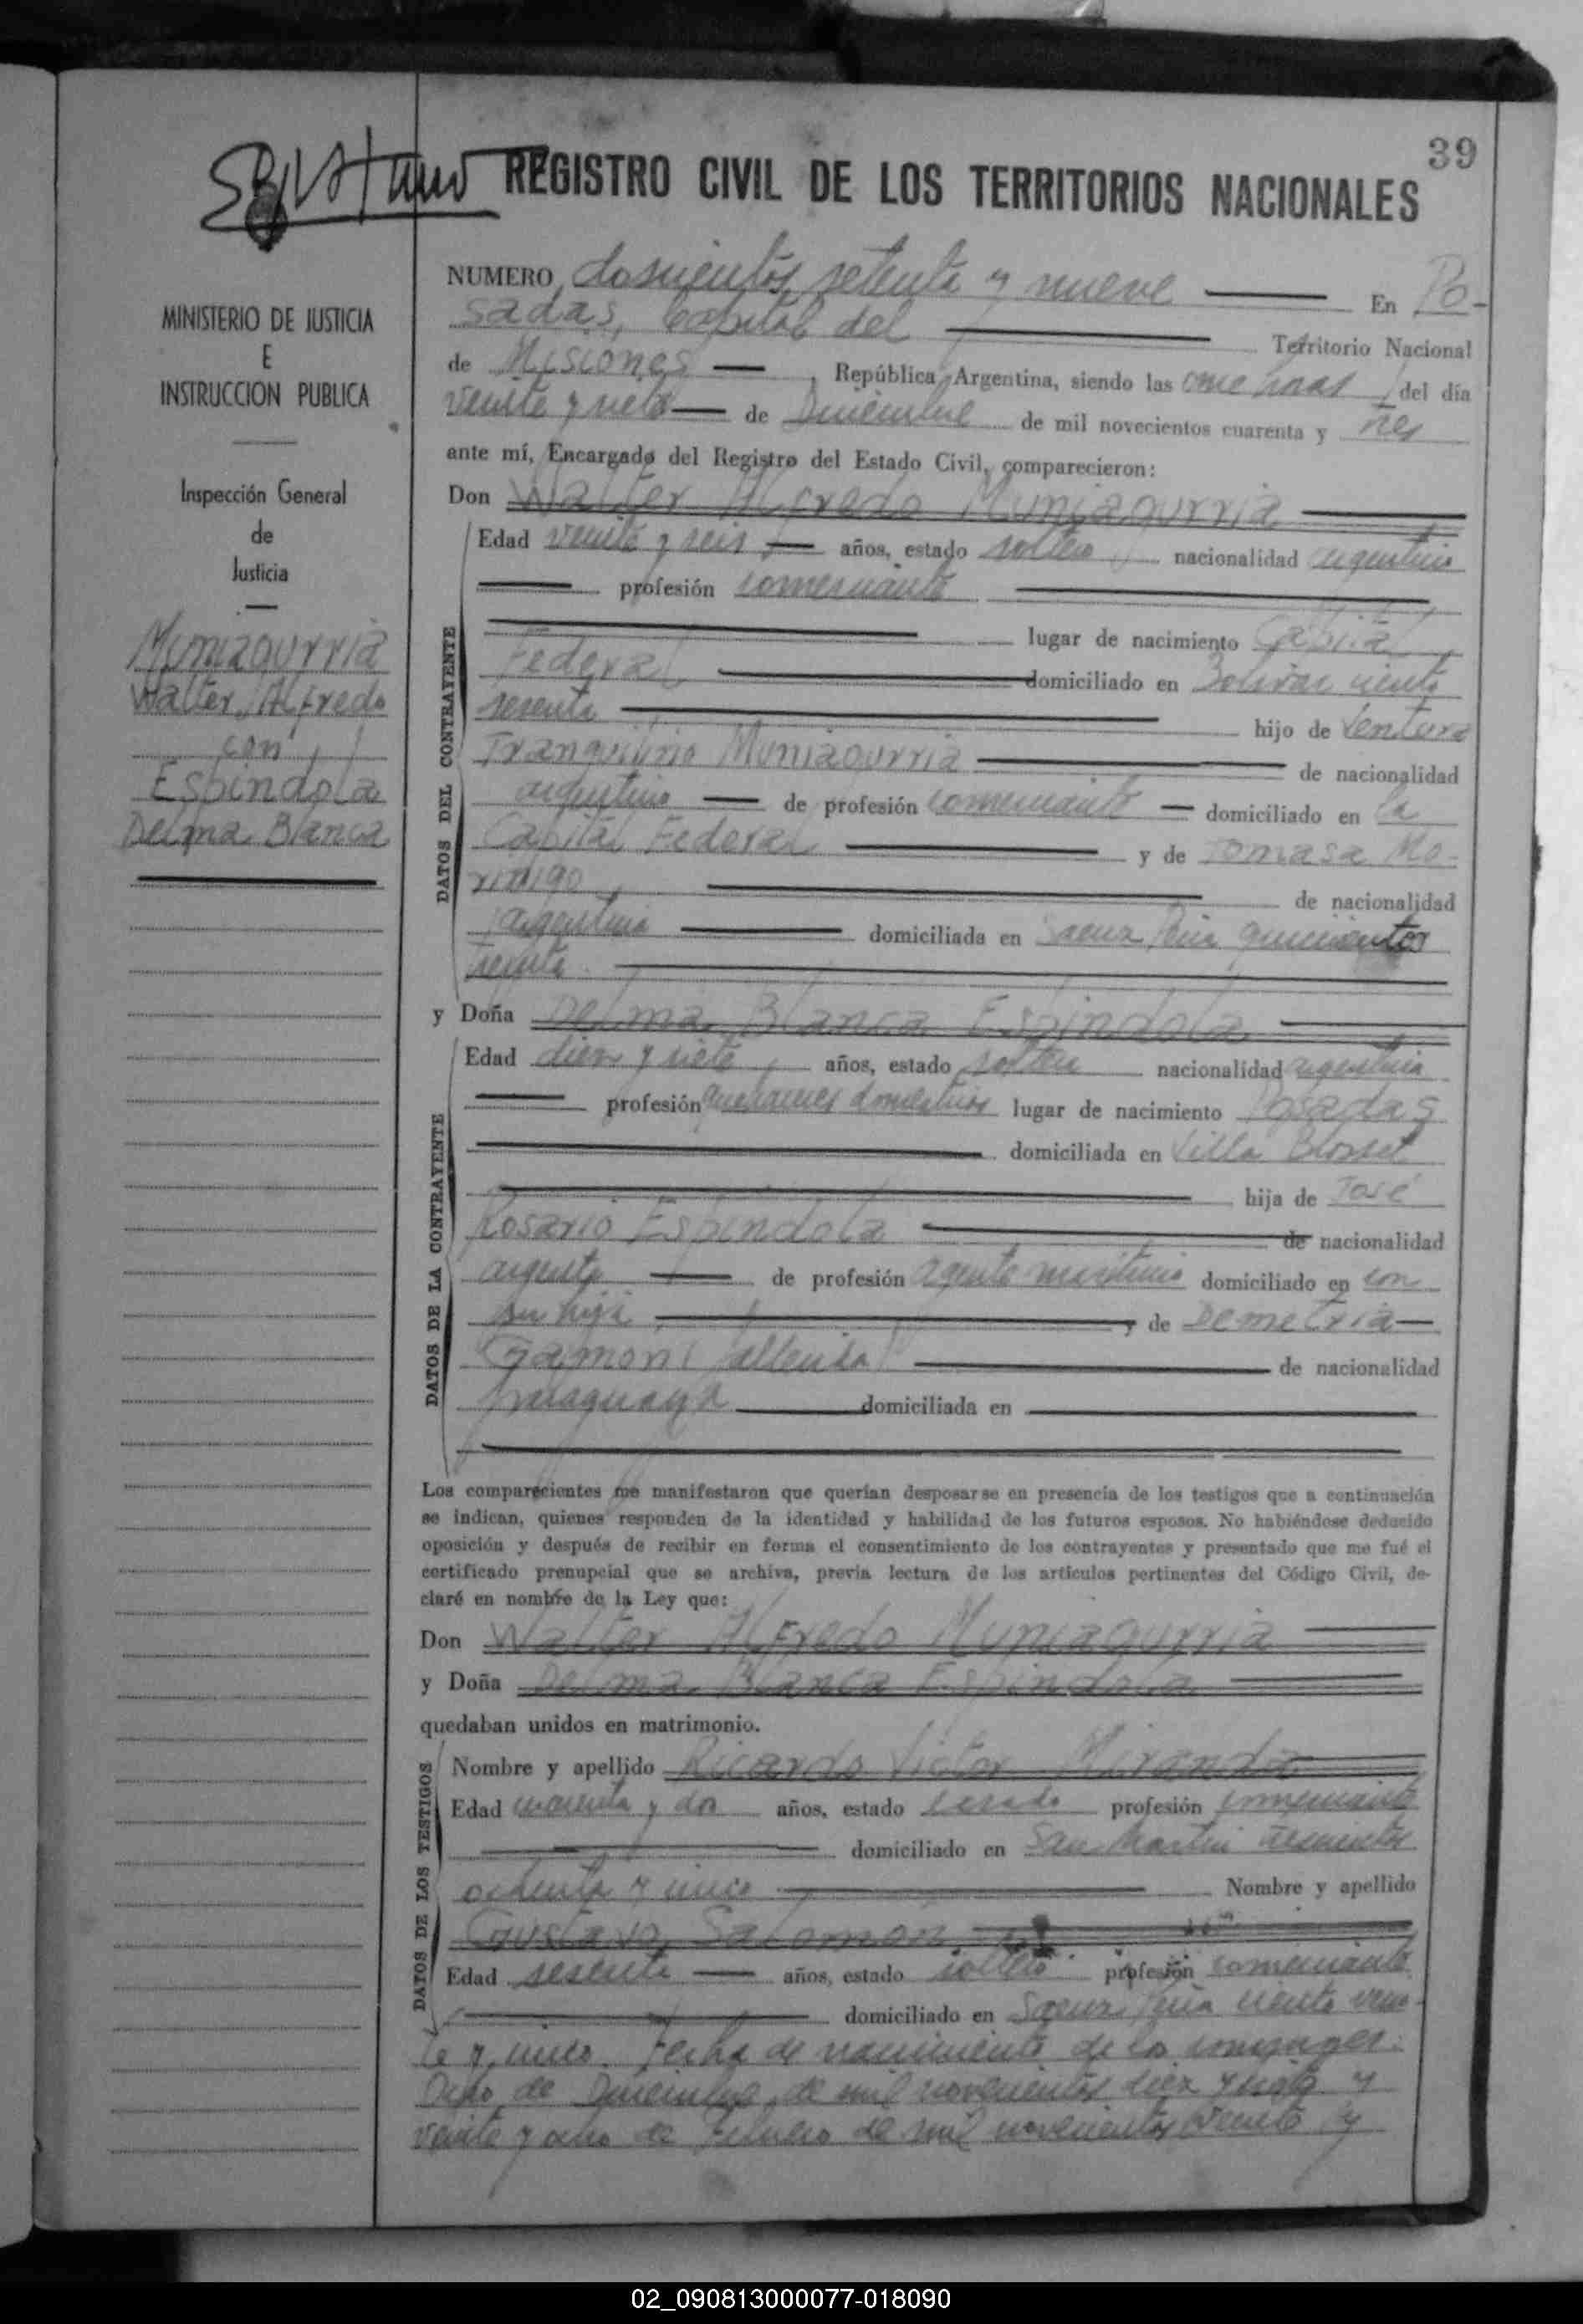 39
REGISTRO CIVIL DE LOS TERRITORIOS NACIONALES
MINISTERIO DE JUSTICIA
E
INSTRUCCION PUBLICA
Inspección General
de
Justicia
Muniagurria
Walter Alfredo
con
Espindola
Delma Blanca
NUMERO doscientos setenta y nueve En Po-
sadas, Capital del Territorio Nacional
de Misiones, República Argentina, siendo las once horas del día
veinte y siete de Diciembre de mil novecientos cuarenta y tres
ante mí, Encargado del Registro del Estado Civil, comparecieron:
Don Walter Alfredo Muniagurria
Edad veinte y seis años, estado soltero nacionalidad argentino
profesión comerciante
lugar de nacimiento Capital
Federal domiciliado en Bolivar ciento
sesenta hijo de Ventura
Tranquilino Muniagurria de nacionalidad
argentino de profesión comerciante domiciliado en la
Capital Federal y de Tomasa Mo-
rinigo de nacionalidad
argentina domiciliada en Saenz Peña quinientos
treinta
DATOS DEL CONTRAYENTE
y Doña Delma Blanca Espindola
Edad diez y siete años, estado soltera nacionalidad argentina
profesión quehaceres domesticos lugar de nacimiento Posadas
domiciliada en Villa Blosset
hija de José
Rosario Espindola de nacionalidad
argentº de profesión agente maritimo domiciliado en con
su hija y de Demetria
Gamoni de nacionalidad
paraguaya domiciliada en
DATOS DE LA CONTRAYENTE
Los comparecientes me manifestaron que querían desposarse en presencia de los testigos que a continuación
se indican, quienes responden de la identidad y habilidad de los futuros esposos. No habiéndose deducido
oposición y después de recibir en forma el consentimiento de los contrayentes y presentado que me fué el
certificado prenupcial que se archiva, previa lectura de los artículos pertinentes del Código Civil, de-
claré en nombre de la Ley que:
Don Walter Alfredo Muniagurria
y Doña Delma Blanca Espindola
quedaban unidos en matrimonio.
Nombre y apellido Ricardo Victor Miranda
Edad cuarenta y dos años, estado casado profesión comerciante
domiciliado en San Martin trescientos
ochenta y cinco Nombre y apellido
Gustavo Salomon
Edad sesenta años, estado soltero profesión comerciante
domiciliado en Saenz Peña ciento vein-
te y cinco. Fecha de nacimiento de los conyuges:
Ocho de Diciembre de mil novecientos diez y siete y
veinte y ocho de Febrero de mil novecientos veinte y
DATOS DE LOS TESTIGOS
02_090813000077-018090